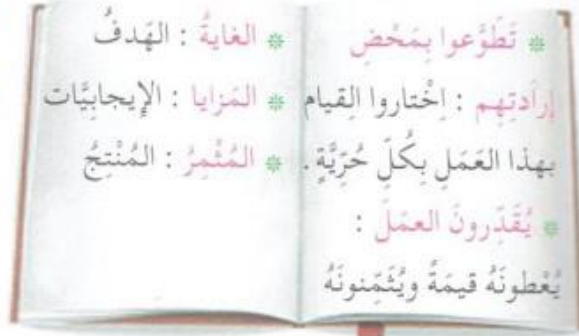 * تَطَوَّعوا بِمَحْضِ
إرادَتِهِم : اِخْتاروا القِيام
بهذا العَمَلِ بِكُلِّ حُرِّيَّةٍ .
* يُقَدِّرونَ العمَلَ :
يُعْطونَهُ قيمَةً ويُثَمِّنونَهُ
* الغايةُ : الهَدفُ
* المَزايا : الإيجابِيَّات
* المُثْمِرُ : المُنْتِجُ